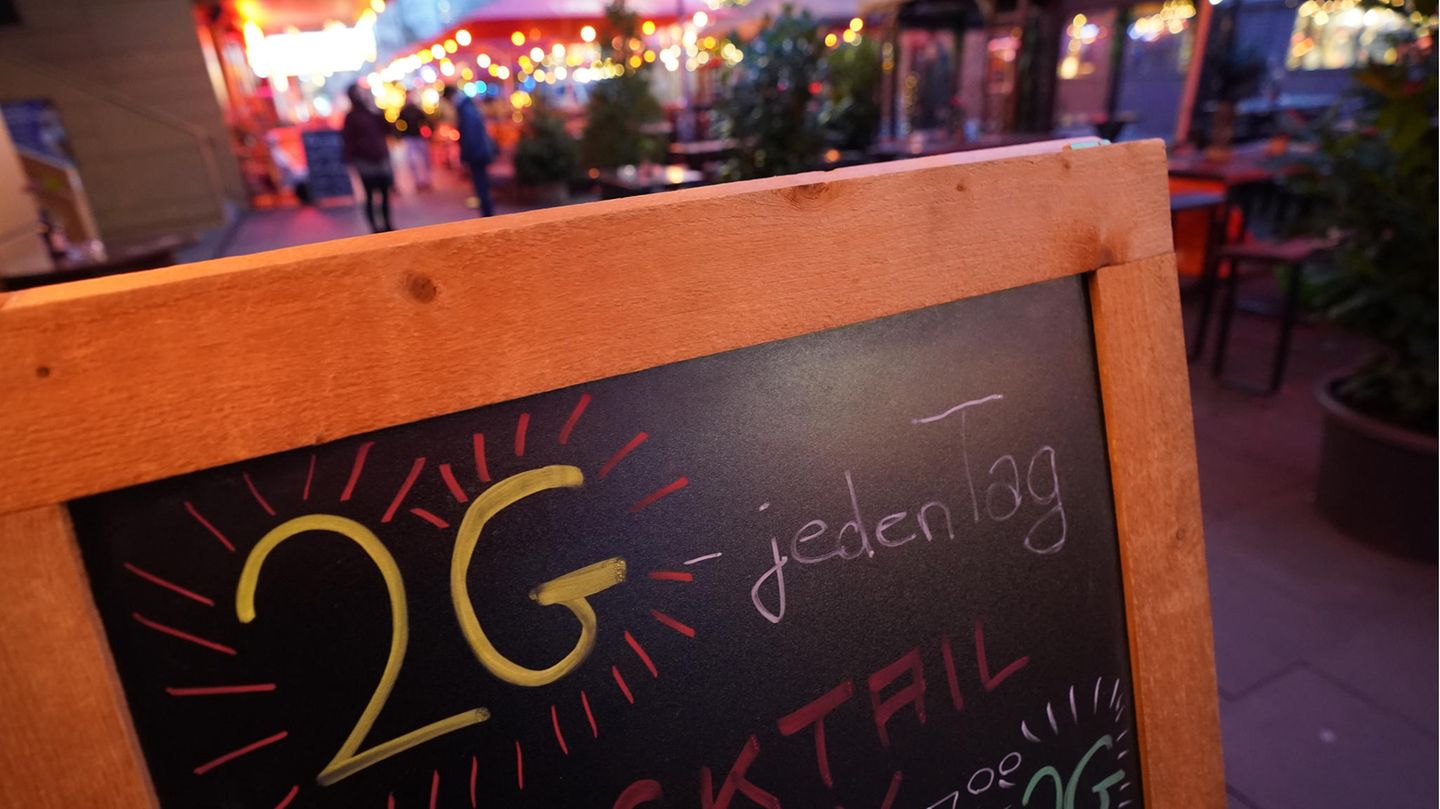 2G - jeden Tag
CKTAIL
:00 2G